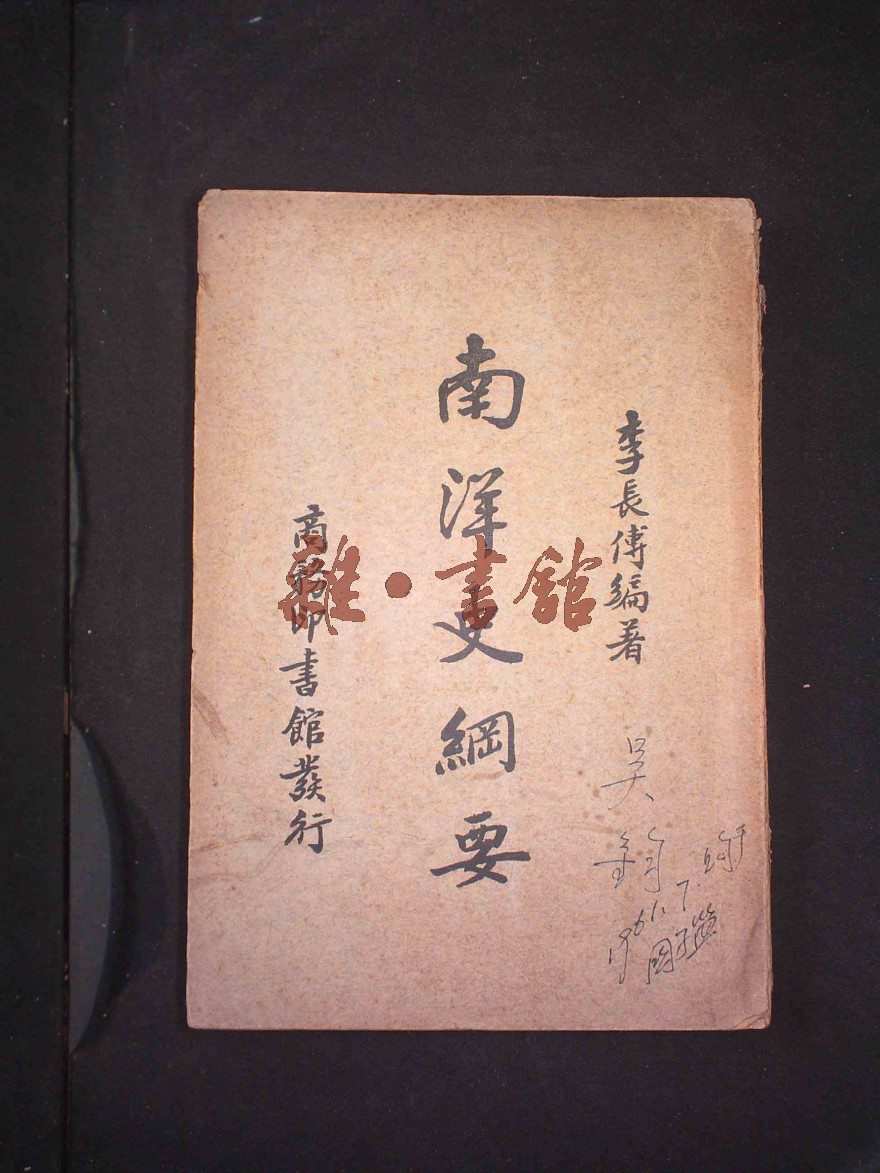 李長傅編著
南洋史綱要
商務印書館發行
雜·書館
吳
1961.7.
國子監